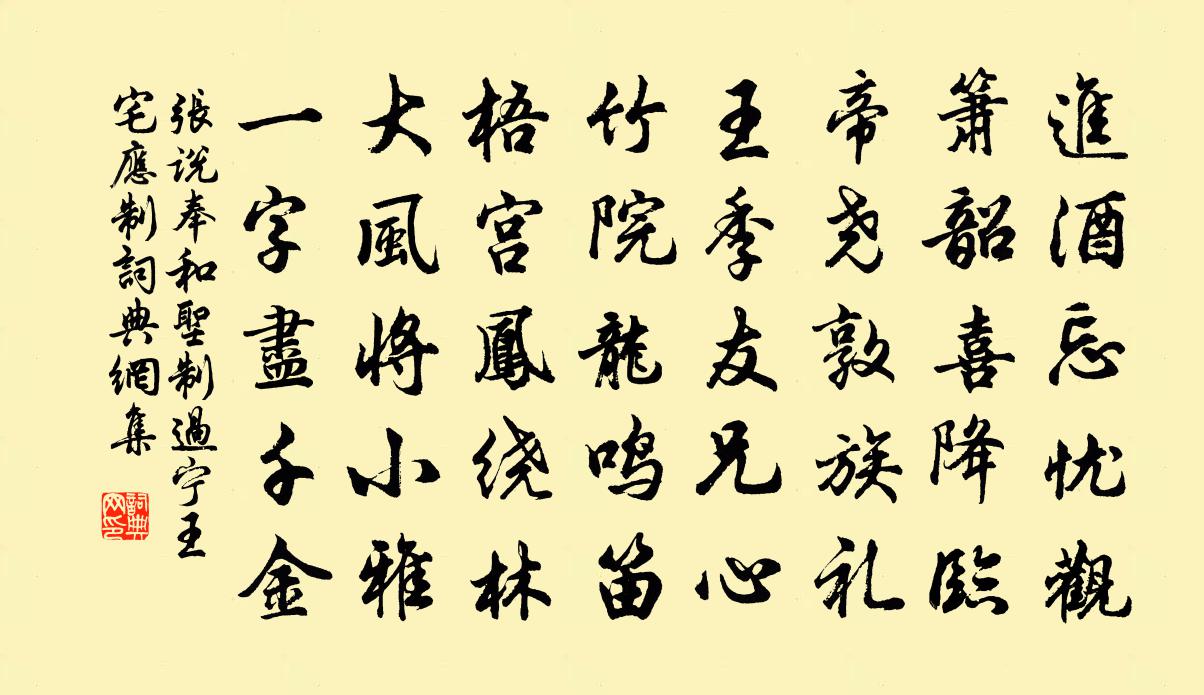 進酒忘忧觀
簫韶喜降臨
帝尧敦族礼
王季友兄心
竹院龍鸣笛
梧宫鳳绕林
大風将小雅
一字盡千金
張説奉和聖制過宁王
宅應制詞典網集
詞典
网印